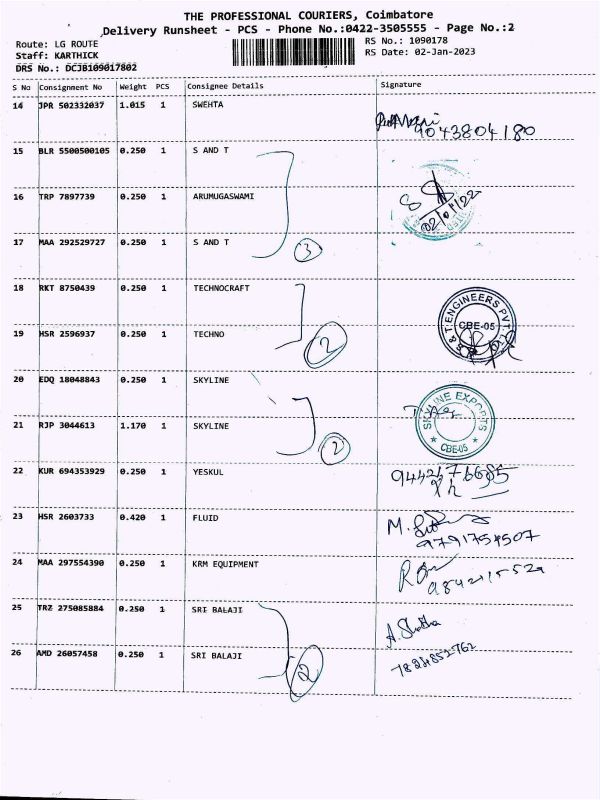 THE PROFESSIONAL COURIERS, Coimbatore
Delivery Runsheet - PCS - Phone No.:0422-3505555 - Page No.:2
Route: LG ROUTE
RS No.: 1090178
Staff: KARTHICK
RS Date: 02-Jan-2023
DRS No.: DCJB109017802
S No Consignment No Weight PCS Consignee Details Signature
14 JPR 502332037 1.015 1 SWEHTA
9043804180
15 BLR 5500500105 0.250 1 S AND T
16 TRP 7897739 0.250 1 ARUMUGASWAMI
17 MAA 292529727 0.250 1 S AND T
3
18 RKT 8750439 0.250 1 TECHNOCRAFT
S & T ENGINEERS PVT LTD
CBE-05
19 HSR 2596937 0.250 1 TECHNO
2
20 EDQ 18048843 0.250 1 SKYLINE
SKYLINE EXPORTS
CBE-05
21 RJP 3044613 1.170 1 SKYLINE
2
22 KUR 694353929 0.250 1 YESKUL
23 HSR 2603733 0.420 1 FLUID
9791754507
24 MAA 297554390 0.250 1 KRM EQUIPMENT
25 TRZ 275085884 0.250 1 SRI BALAJI
26 AMD 26057458 0.250 1 SRI BALAJI
2
7824852762